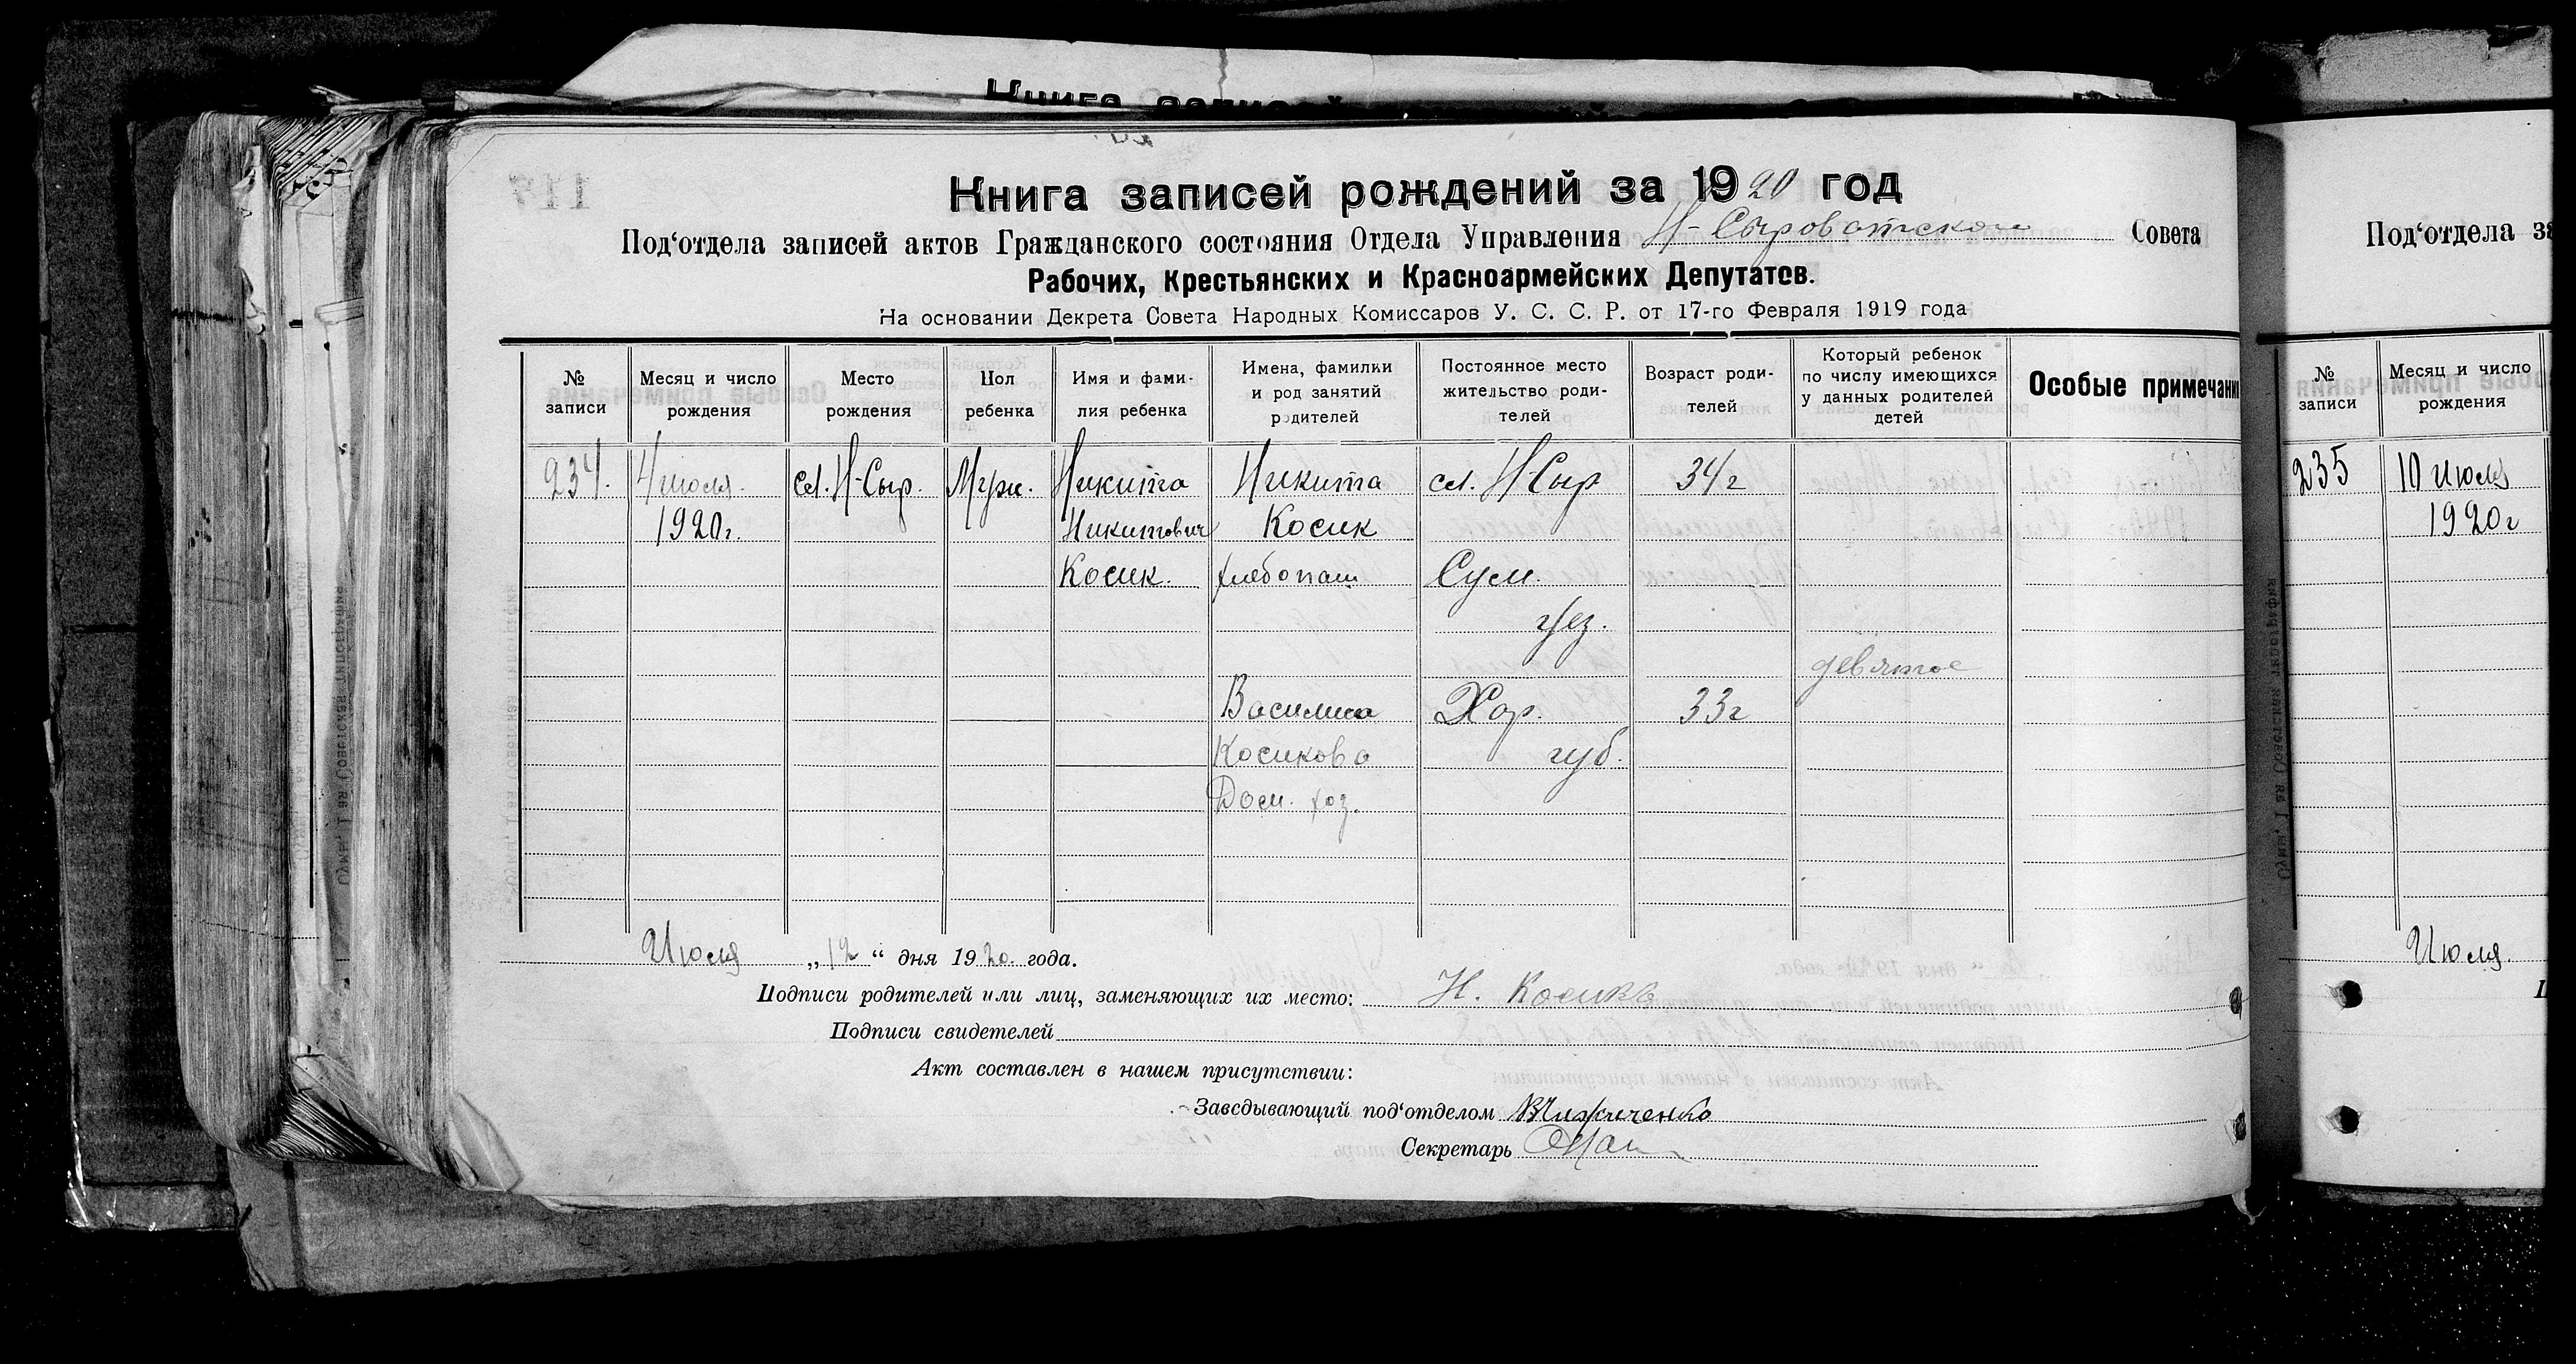 Книга записей
Книга записей рождений за 1920 год
Под‘отдела записей актов Гражданского состояния Отдела Управления Н-Сыроватском Совета
Рабочих, Крестьянских и Красноармейских Депутатов.
На основании Декрета Совета Народных Комиссаров У. С. С. Р. от 17-го Февраля 1919 года
№ записи
Месяц и число рождения
Место рождения
Пол ребенка
Имя и фами-
лия ребенка
Имена, фамилии
и род занятий
родителей
Постоянное место
жительство роди-
телей
Возраст роди-
телей
Который ребенок
по числу имеющихся
у данных родителей
детей
Особые примечани
234. 4 июля. сл. Н-Сыр. Муж. Никита Никита сл. Н-Сыр 34 г
1920 г. Никитович Косик
Косик. хлебопаш Сум.
уез.
девятое
Василиса Хар. 33 г
Косикова губ.
Дом. хоз.
Июля „12“ дня 1920. года.
Подписи родителей или лиц, заменяющих их место: Н. Косикъ
Подписи свидетелей
Акт составлен в нашем присутствии:
Заведывающий под‘отделом
Секретарь
Под‘отдела за
№ записи
Месяц и число рождения
235 10 июля
1920 г
Июля.